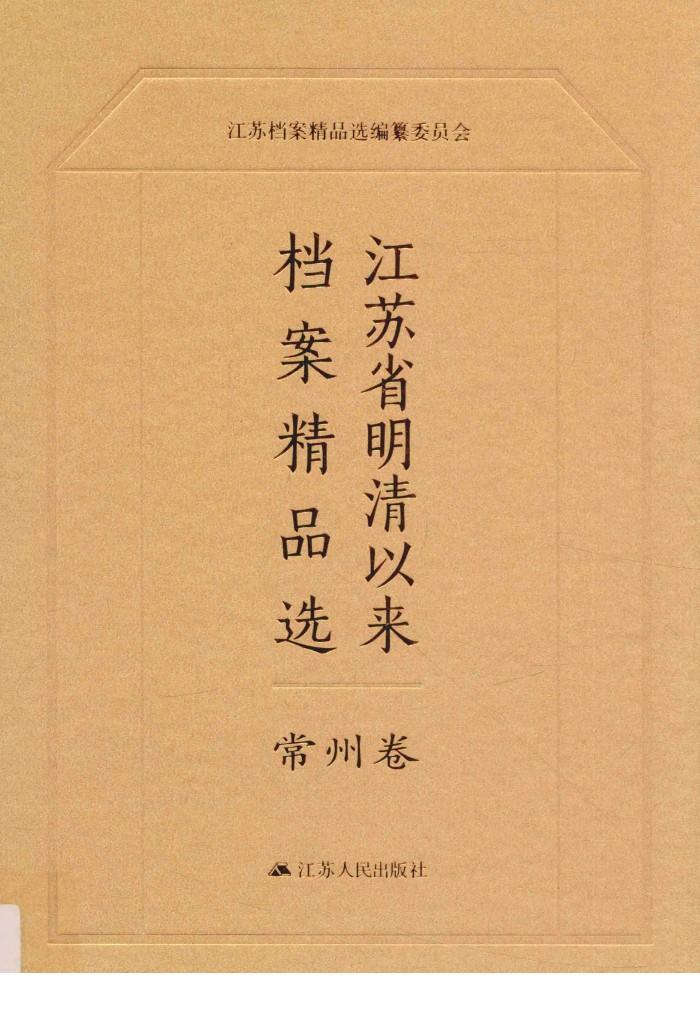 江苏档案精品选编纂委员会
江苏省明清以来
档案精品选
常州卷
江苏人民出版社